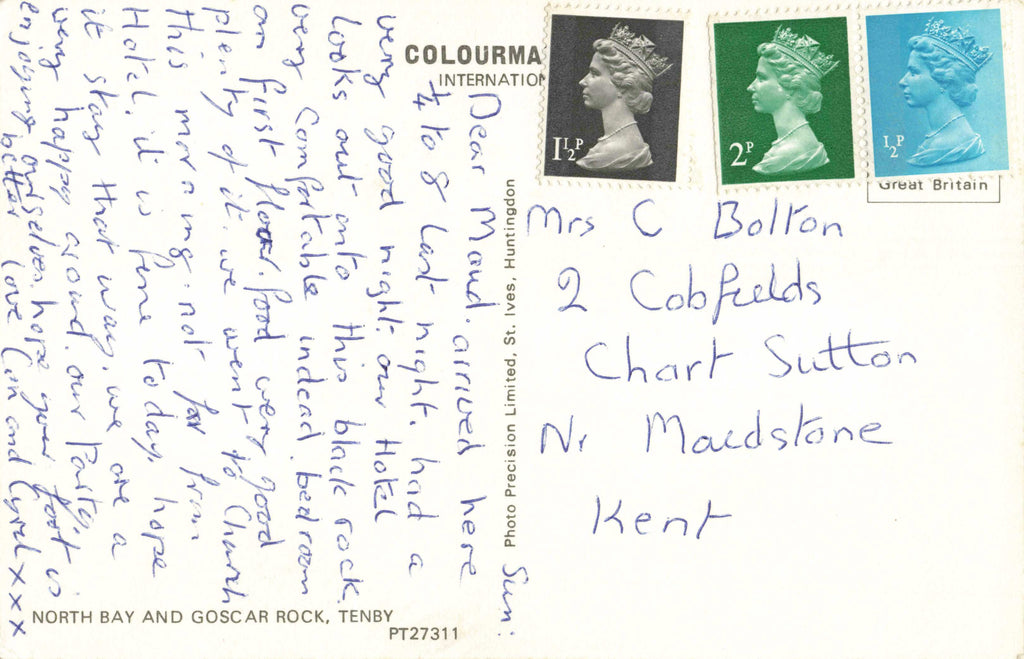 COLOURMA
INTERNATION
1½P
2P
½P
Great Britain
Sun.
Dear Maud. arrived here
¼ to 8 last night. had a
very good night. our Hotel
Looks out onto this black rock.
very Comfortable indead. bedroom
on first floor. food very good
plenty of it. we went to Church
this morning. not far from
Hotel. it is fine today. hope
it stay that way. we are a
very happy crowd. our Party.
enjoying ourselves. hope your foot is
better love Cin and Cyril x x x
Photo Precision Limited, St. Ives, Huntingdon
Mrs C Bolton
2 Cobfields
Chart Sutton
Nr Maedstone
Kent
NORTH BAY AND GOSCAR ROCK, TENBY
PT27311